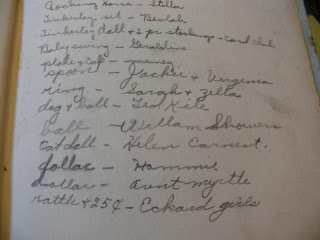 Rocking Horse - Stella
Tinkerley set - Beulah
Tinkerley doll & 2 pr stockings - Card club
Baby swing - Geraldine
plate & cup -
spoon - Jackie & Virginia
ring - Sarah & Zella
dog & ball - Ted Kile
ball - Willam Showers
Cat doll - Helen Earnest.
dollar - Hammie
dollar - Aunt Myrtle
rattle & 25¢ - Eckard girls